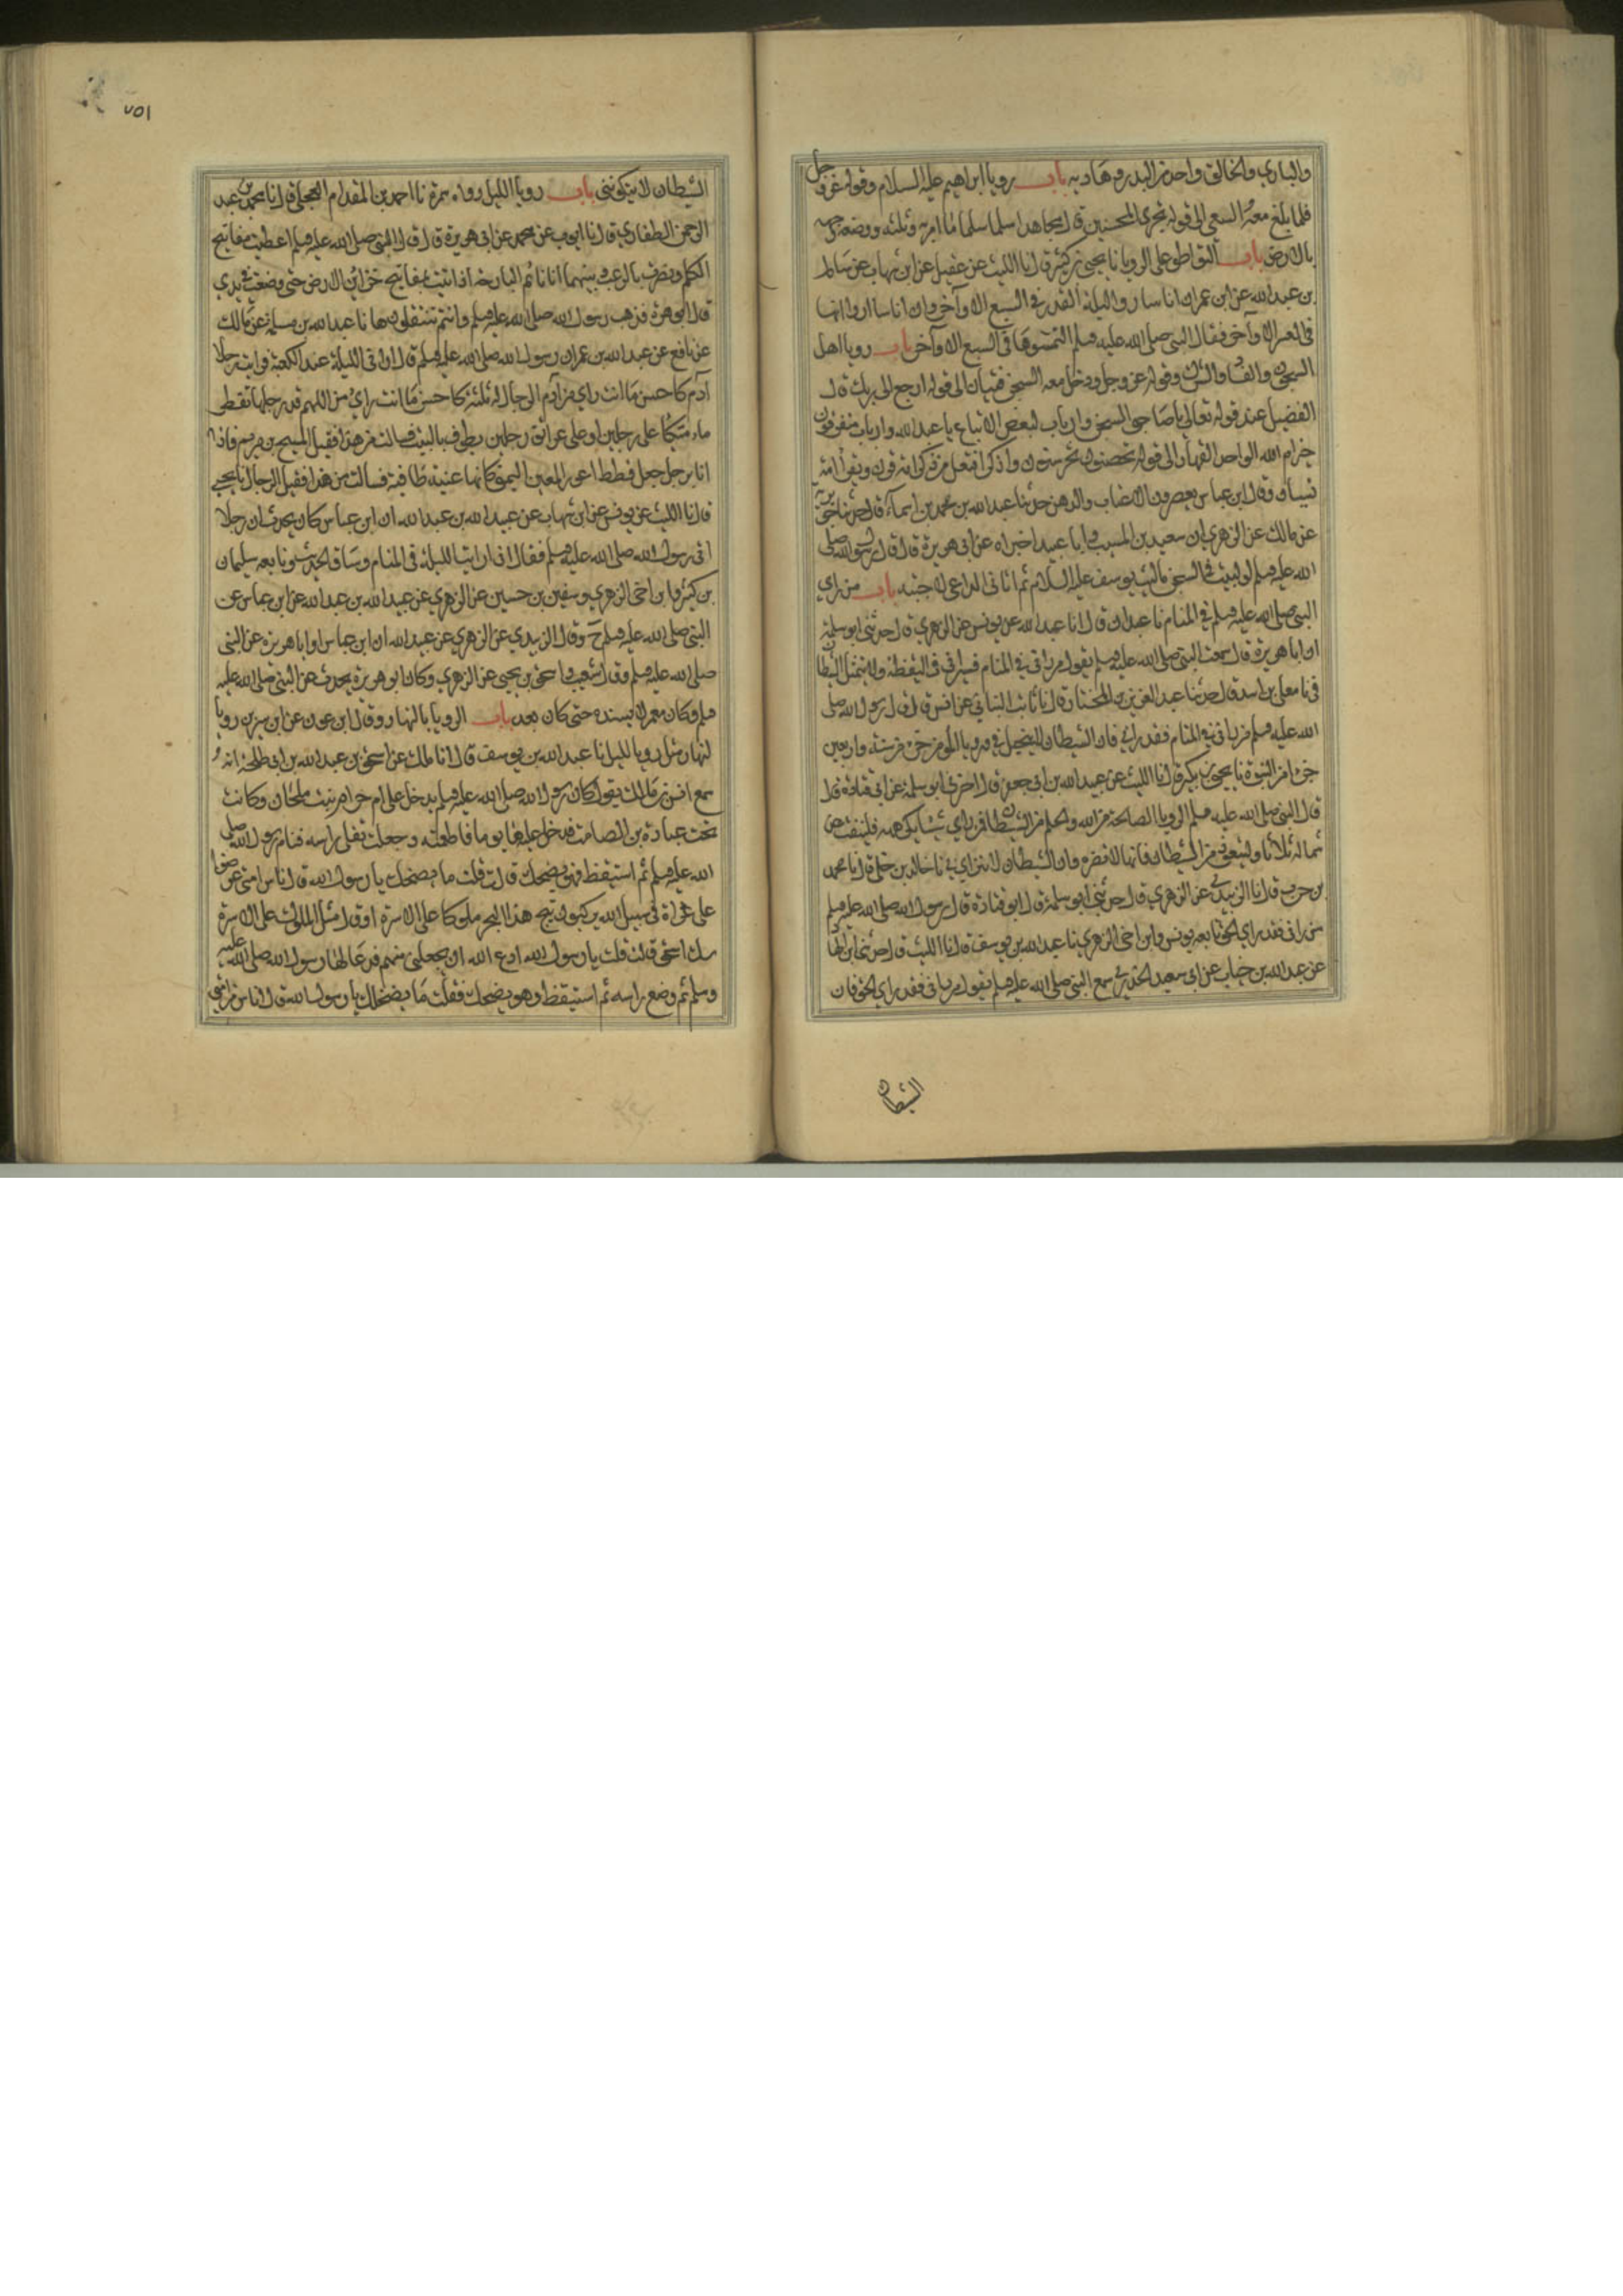 والباري والخالق واحد من البدو وهادبه باب رويا ابراهيم عليه السلام وقوله عز وجل
فلما بلغ معه السعي الى قوله نجزي المحسنين قال مجاهد اسلما سلما ما امرا به وتله ووضع وجهه
بالارض باب التواطو على الرويا نا يحيى بن بكير قال نا الليث عن عقيل عن ابن شهاب عن سالم
بن عبد الله عن ابن عمر ان اناسا اروا ليلة القدر في السبع الاواخر وان اناسا اروا انها
في العشر الاواخر فقال النبي صلى الله عليه وسلم التمسوها في السبع الاواخر باب رويا اهل
السجون والفساد والشرك وقوله عز وجل ودخل معه السجن فتيان الى قوله ارجع الى ربك قال
الفضيل عند قوله تعالى يا صاحبي السجن وارباب لبعض الاتباع يا عبد الله وارباب متفرقون
خير ام الله الواحد القهار الى قوله تحصنون تحرسون واذكر افتعل من ذكر امة قرن ويقرا امه
نسيان وقال ابن عباس يعصرون الاعناب والدهن حدثنا عبد الله بن محمد بن اسماء قال حدثنا جويرية
عن مالك عن الزهري ان سعيد بن المسيب وابا عبيد اخبراه عن ابي هريرة قال قال رسول الله صلى
الله عليه وسلم لو لبثت في السجن ما لبث يوسف عليه السلام ثم اتاني الداعي لاجبته باب من راي
النبي صلى الله عليه وسلم في المنام نا عبدان قال انا عبد الله عن يونس عن الزهري قال حدثني ابو سلمة
ان ابا هريرة قال سمعت النبي صلى الله عليه وسلم يقول من راني في المنام فسيراني في اليقظة ولا يتمثل الشيطان
في نا معلى بن اسد قال حدثنا عبد العزيز بن المختار قال نا ثابت البناني عن انس قال قال رسول الله صلى
الله عليه وسلم من راني في المنام فقد راني فان الشيطان لا يتخيل بي ورويا المومن جزء من ستة واربعين
جزءا من النبوة نا يحيى بن بكير قال نا الليث عن عبيد الله بن ابي جعفر قال اخبرني ابو سلمة عن ابي قتادة قال
قال النبي صلى الله عليه وسلم الرويا الصالحة من الله والحلم من الشيطان فمن راي شيئا يكرهه فلينفث عن
شماله ثلاثا وليتعوذ من الشيطان فانها لا تضره وان الشيطان لا يتراي بي نا خالد بن خلي قال نا محمد
بن حرب قال نا الزبيدي عن الزهري قال حدثني ابو سلمة قال ابو قتادة قال رسول الله صلى الله عليه وسلم
من راني فقد راي الحق تابعه يونس وابن اخي الزهري نا عبد الله بن يوسف قال نا الليث قال حدثنا ابن الهاد
عن عبد الله بن خباب عن ابي سعيد الخدري سمع النبي صلى الله عليه وسلم يقول من راني فقد راي الحق فان
الشيطان
٧٥١
الشيطان لا يتكونني باب رويا الليل رواه سمرة نا احمد بن المقدام العجلي قال نا محمد بن عبد
الرحمن الطفاوي قال نا ايوب عن محمد عن ابي هريرة قال قال النبي صلى الله عليه وسلم اعطيت مفاتيح
الكلم ونصرت بالرعب وبينما انا نائم البارحة اذ اتيت بمفاتيح خزائن الارض حتى وضعت في يدي
قال ابو هريرة فذهب رسول الله صلى الله عليه وسلم وانتم تنتقلونها نا عبد الله بن مسلمة عن مالك
عن نافع عن عبد الله بن عمر ان رسول الله صلى الله عليه وسلم قال اراني الليلة عند الكعبة فرايت رجلا
آدم كاحسن ما انت راي من آدم الرجال له لمة كاحسن ما انت راي من اللمم قد رجلها تقطر
ماء متكئا على رجلين او على عواتق رجلين يطوف بالبيت فسالت من هذا فقيل المسيح بن مريم فاذا
انا برجل جعد قطط اعور العين اليمنى كانها عنبة طافية فسالت من هذا فقيل الدجال نا يحيى
قال نا الليث عن يونس عن ابن شهاب عن عبيد الله بن عبد الله ان ابن عباس كان يحدث ان رجلا
اتى رسول الله صلى الله عليه وسلم فقال اني اريت الليلة في المنام وساق الحديث وتابعه سليمان
بن كثير وابن اخي الزهري وسفين بن حسين عن الزهري عن عبيد الله بن عبد الله عن ابن عباس عن
النبي صلى الله عليه وسلم ح وقال الزبيدي عن الزهري عن عبيد الله ان ابن عباس او ابا هريرة عن النبي
صلى الله عليه وسلم وقال شعيب واسحق بن يحيى عن الزهري وكان ابو هريرة يحدث عن النبي صلى الله عليه
وسلم وكان معمر لا يسنده حتى كان بعد باب الرويا بالنهار وقال ابن عون عن ابن سيرين رويا
النهار مثل رويا الليل نا عبد الله بن يوسف قال انا ملك عن اسحق بن عبد الله بن ابي طلحة انه
سمع انس بن مالك يقول كان رسول الله صلى الله عليه وسلم يدخل على ام حرام بنت ملحان وكانت
تحت عبادة بن الصامت فدخل عليها يوما فاطعمته وجعلت تفلي راسه فنام رسول الله صلى
الله عليه وسلم ثم استيقظ وهو يضحك قالت قلت ما يضحك يا رسول الله قال ناس من امتي عرضوا
علي غزاة في سبيل الله يركبون ثبج هذا البحر ملوكا على الاسرة او قال مثل الملوك على الاسرة
شك اسحق قالت قلت يا رسول الله ادع الله ان يجعلني منهم فدعا لها رسول الله صلى الله عليه
وسلم ثم وضع راسه ثم استيقظ وهو يضحك فقلت ما يضحكك يا رسول الله قال ناس من امتي